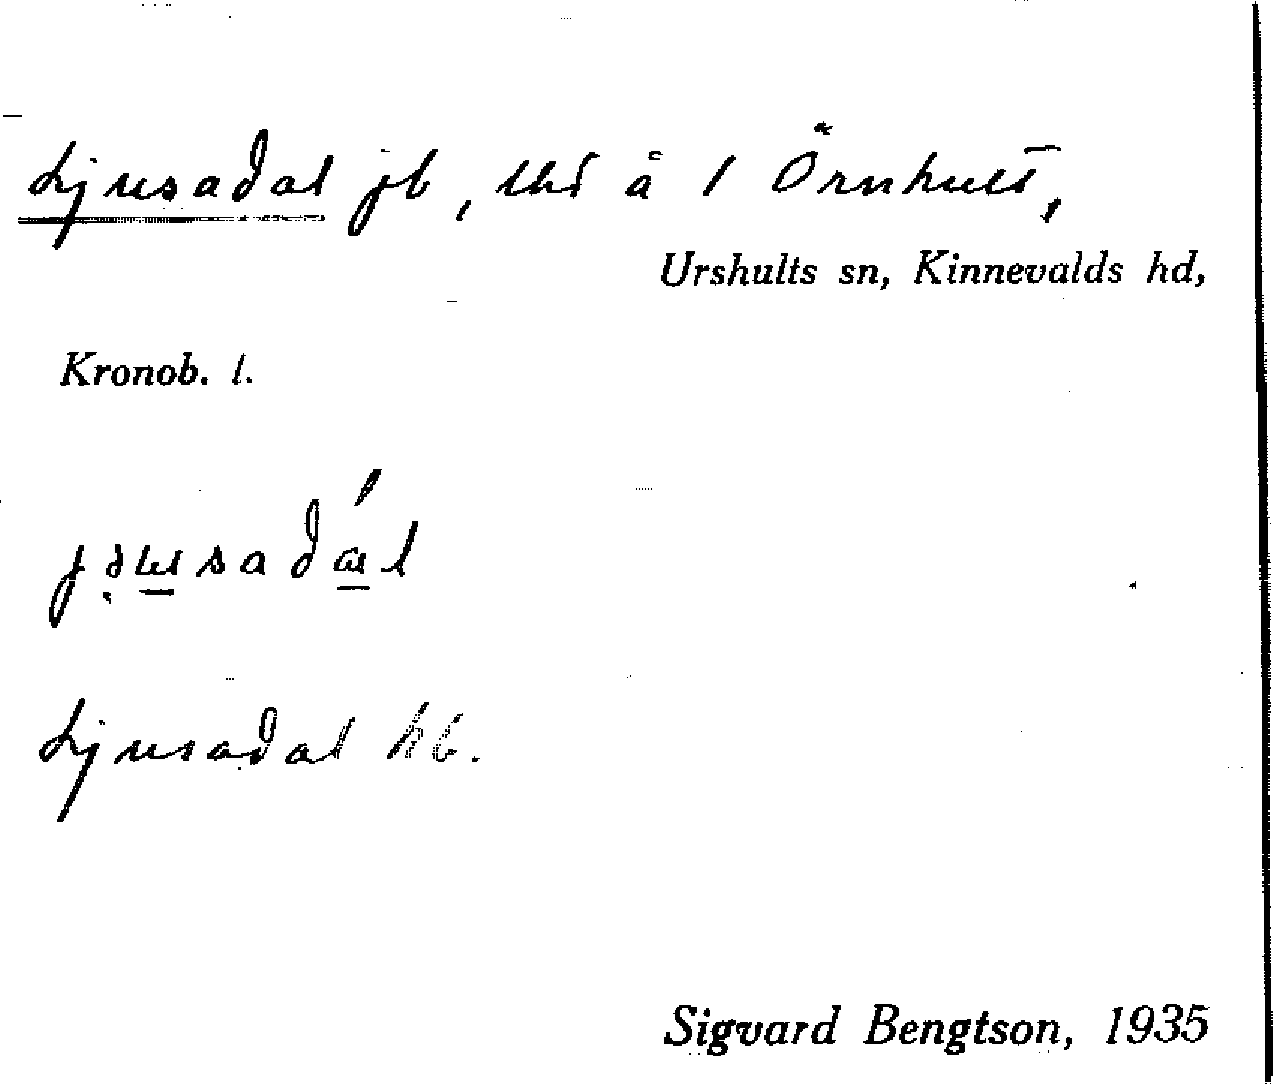 Ljusadal jb, lhd å 1 Örnhult,
Urshults sn, Kinnevalds hd,
Kronob. l.
Ljusadal hb.
Sigvard Bengtson, 1935